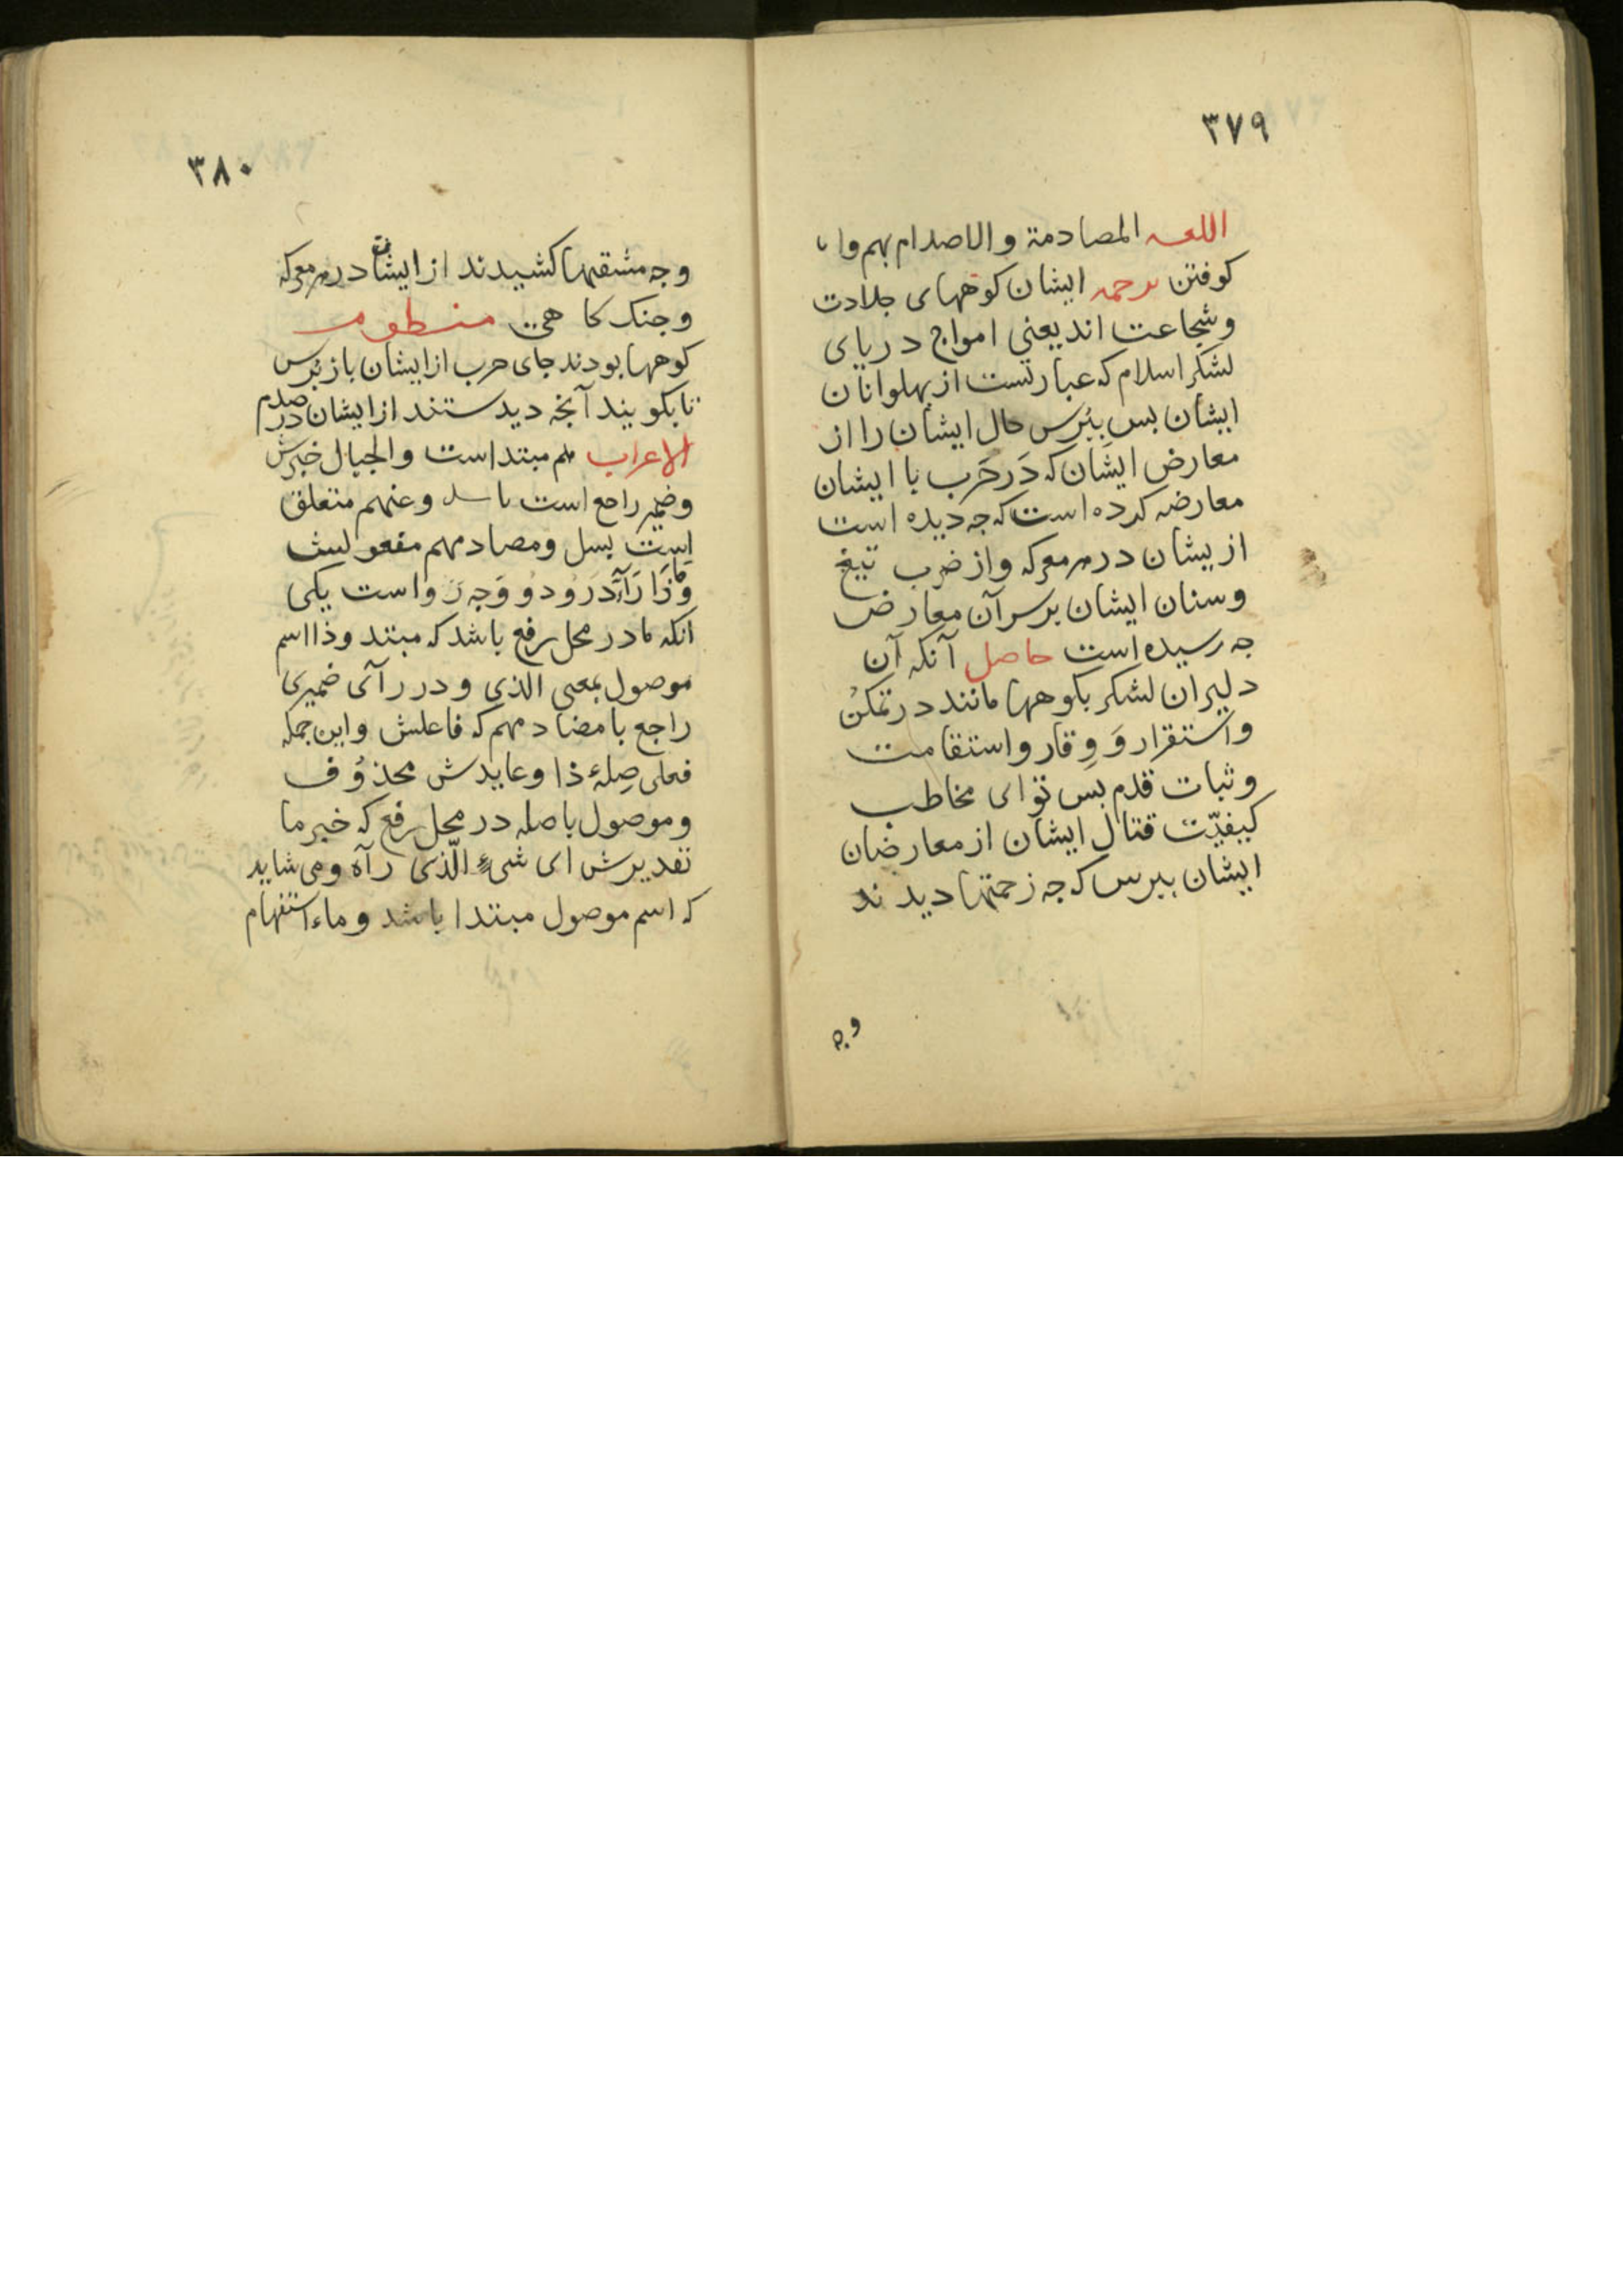 ٣٧٩
اللغـه المصادمة و الاصدام بهم وا
كوفتن ترجمه ايشان كوههاى جلادت
وشجاعت اند يعنى امواج درياى
لشكر اسلام كه عبارتست از پهلوانان
ايشان بس بپرس حال ايشان را از
معارض ايشان كه در حرب با ايشان
معارضه كرده است كه جه ديده است
از يشان در هر معركه واز ضرب تيغ
وسنان ايشان برسر آن معارض
جه رسيده است حاصل آنكه آن
دليران لشكر بكوهها مانند در تمكن
واستقرار و وقار واستقامت
وثبات قدم بس تو اى مخاطب
كيفيّت قتال ايشان از معارضان
ايشان بپرس كه جه زحمتها ديدند
وجه
٣٨٠
وجه مشقتها كشيدند از ايشان در هر معركه
وجنك كا هى منظومه
كوهها بودند جاى حرب از ايشان باز پرس
تا بكويند آنجه ديدستند از ايشان در صدم
الاعراب هم مبتداست والجبال خبرش
وضمير راجع است وعنهم متعلق
است بسل ومصادمهم مفعوليش
وماذا راء درو دو وجه روا است يكى
انكه ما در محل رفع باشد كه مبتد وذا اسم
موصول بمعنى الذى و در رآى ضميرى
راجع با مصادمهم كه فاعلش واين جمله
فعلى صلهٔ ذا وعايدش محذوف
وموصول باصله در محل رفع كه خبر ما
تقديرش اى شىء الّذى رآه ومى شايد
كه اسم موصول مبتدا باشد و ماء استفهام